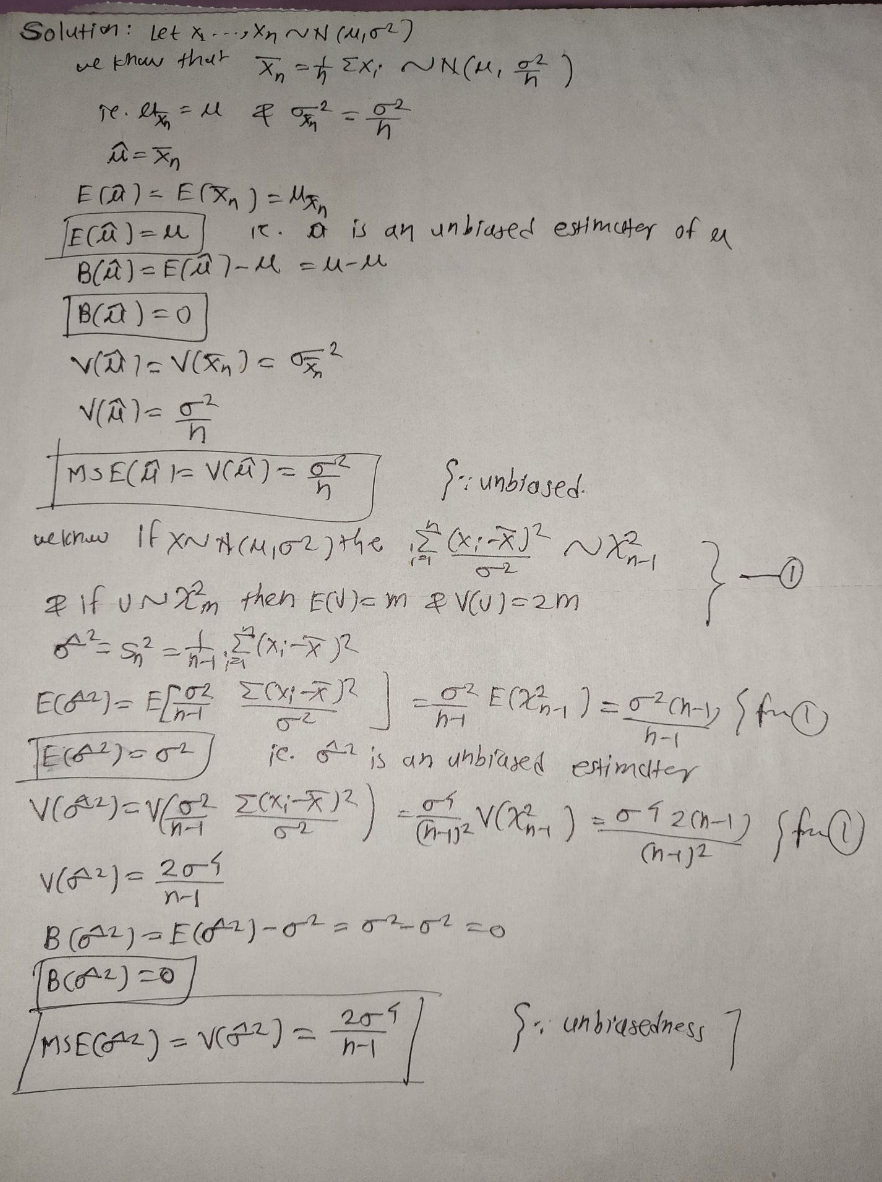 Solution: Let X1...., Xn ~ N(μ, σ2)
we know that X̄n = 1/n ΣXi ~ N(μ, σ²/n)
ie. μX̄n = μ & σX̄n² = σ²/n
μ̂ = X̄n
E(μ̂) = E(X̄n) = μX̄n
E(μ̂) = μ ie. μ̂ is an unbiased estimator of μ
B(μ̂) = E(μ̂) - μ = μ - μ
B(μ̂) = 0
V(μ̂) = V(X̄n) = σX̄n²
V(μ̂) = σ²/n
MSE(μ̂) = V(μ̂) = σ²/n {∵ unbiased.
we know if X ~ N(μ, σ2) the Σi=1^n (Xi - X̄)²/σ² ~ χ²n-1
& if U ~ χ²m then E(U) = m & V(U) = 2m } — ①
σ̂² = Sn² = 1/(n-1) Σi=1^n (Xi - X̄)²
E(σ̂²) = E[σ²/(n-1) Σ(Xi - X̄)²/σ²] = σ²/(n-1) E(χ²n-1) = σ²(n-1)/(n-1) {fm ①
E(σ̂²) = σ² ie. σ̂² is an unbiased estimator
V(σ̂²) = V(σ²/(n-1) Σ(Xi - X̄)²/σ²) = σ⁴/(n-1)² V(χ²n-1) = σ⁴ 2(n-1)/(n-1)² {fm ①
V(σ̂²) = 2σ⁴/(n-1)
B(σ̂²) = E(σ̂²) - σ² = σ² - σ² = 0
B(σ̂²) = 0
MSE(σ̂²) = V(σ̂²) = 2σ⁴/(n-1) {∵ unbiasedness ]